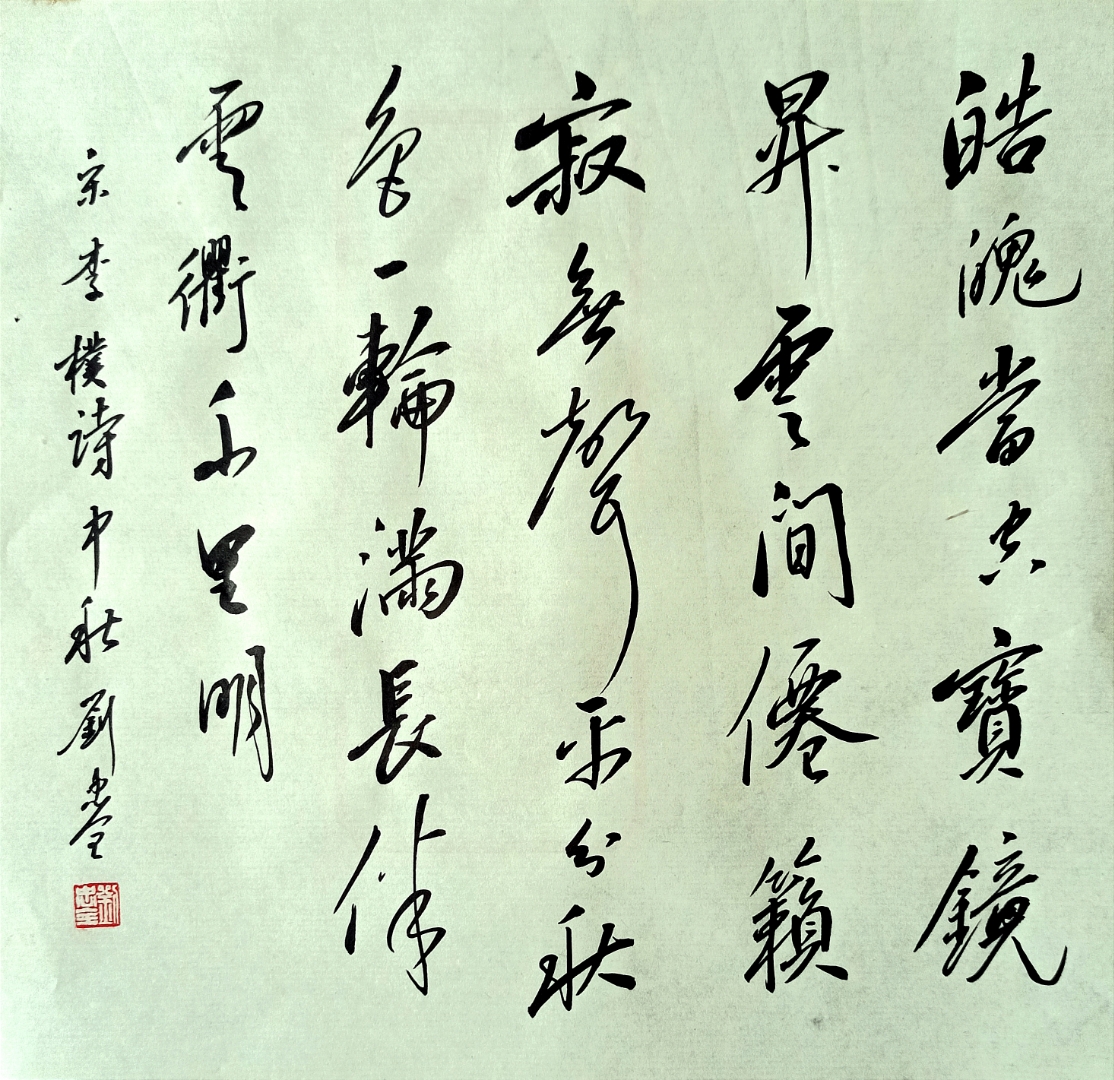 皓魄當空寶鏡
昇雲間僊籟
寂無聲平分秋
色一輪滿長伴
雲衢千里明
宋李樸詩中秋劉忠全